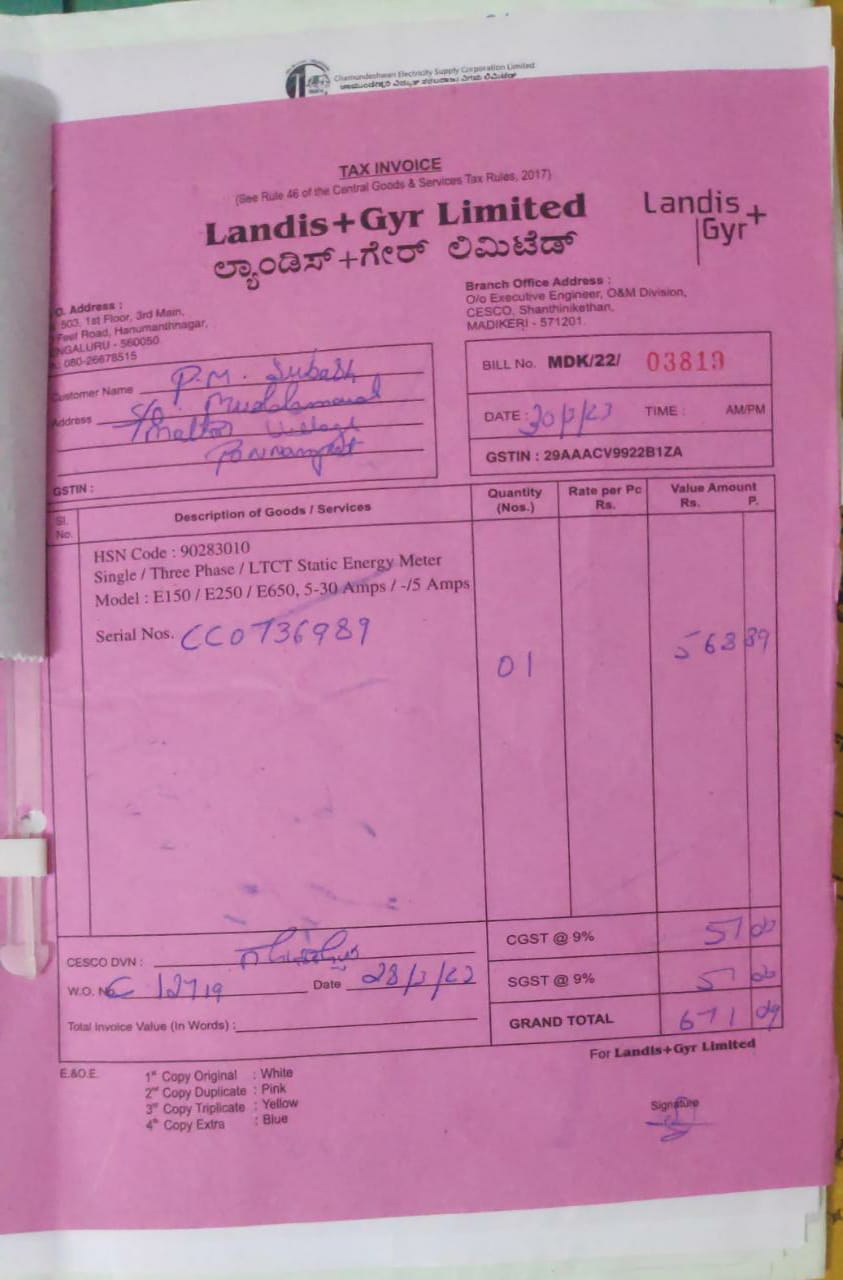 Chamundeshwari Electricity Supply Corporation Limited
ಚಾಮುಂಡೇಶ್ವರಿ ವಿದ್ಯುತ್ ಸರಬರಾಜು ನಿಗಮ ಲಿಮಿಟೆಡ್
TAX INVOICE
(See Rule 46 of the Central Goods & Services Tax Rules, 2017)
Landis+Gyr Limited
ಲ್ಯಾಂಡಿಸ್+ಗೇರ್ ಲಿಮಿಟೆಡ್
Landis
Gyr+
O. Address :
503, 1st Floor, 3rd Main,
Feet Road, Hanumanthnagar,
NGALURU - 560050
: 080-26678515
Branch Office Address :
O/o Executive Engineer, O&M Division,
CESCO, Shanthinikethan,
MADIKERI - 571201.
Customer Name P.M. Subash
Address S/o.
Village
GSTIN :
BILL No. MDK/22/ 03819
DATE : TIME : AM/PM
GSTIN : 29AAACV9922B1ZA
Sl. No. Description of Goods / Services Quantity (Nos.) Rate per Pc Rs. Value Amount Rs. P.
HSN Code : 90283010
Single / Three Phase / LTCT Static Energy Meter
Model : E150 / E250 / E650, 5-30 Amps / -/5 Amps
Serial Nos. CC0736989
01 568 89
CESCO DVN :
W.O. No Date
Total Invoice Value (In Words) :
CGST @ 9% 51
SGST @ 9% 51
GRAND TOTAL 671 09
For Landis+Gyr Limited
E.&O.E.
1st Copy Original : White
2nd Copy Duplicate : Pink
3rd Copy Triplicate : Yellow
4th Copy Extra : Blue
Signature